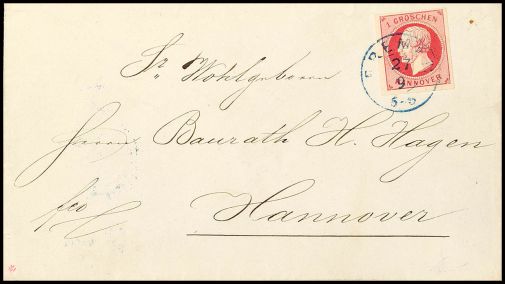 1 GROSCHEN
HANNOVER
BREMEN
27
9
5-6
Sr Wohlgeboren
Herrn Baurath H. Hagen
fco
Hannover